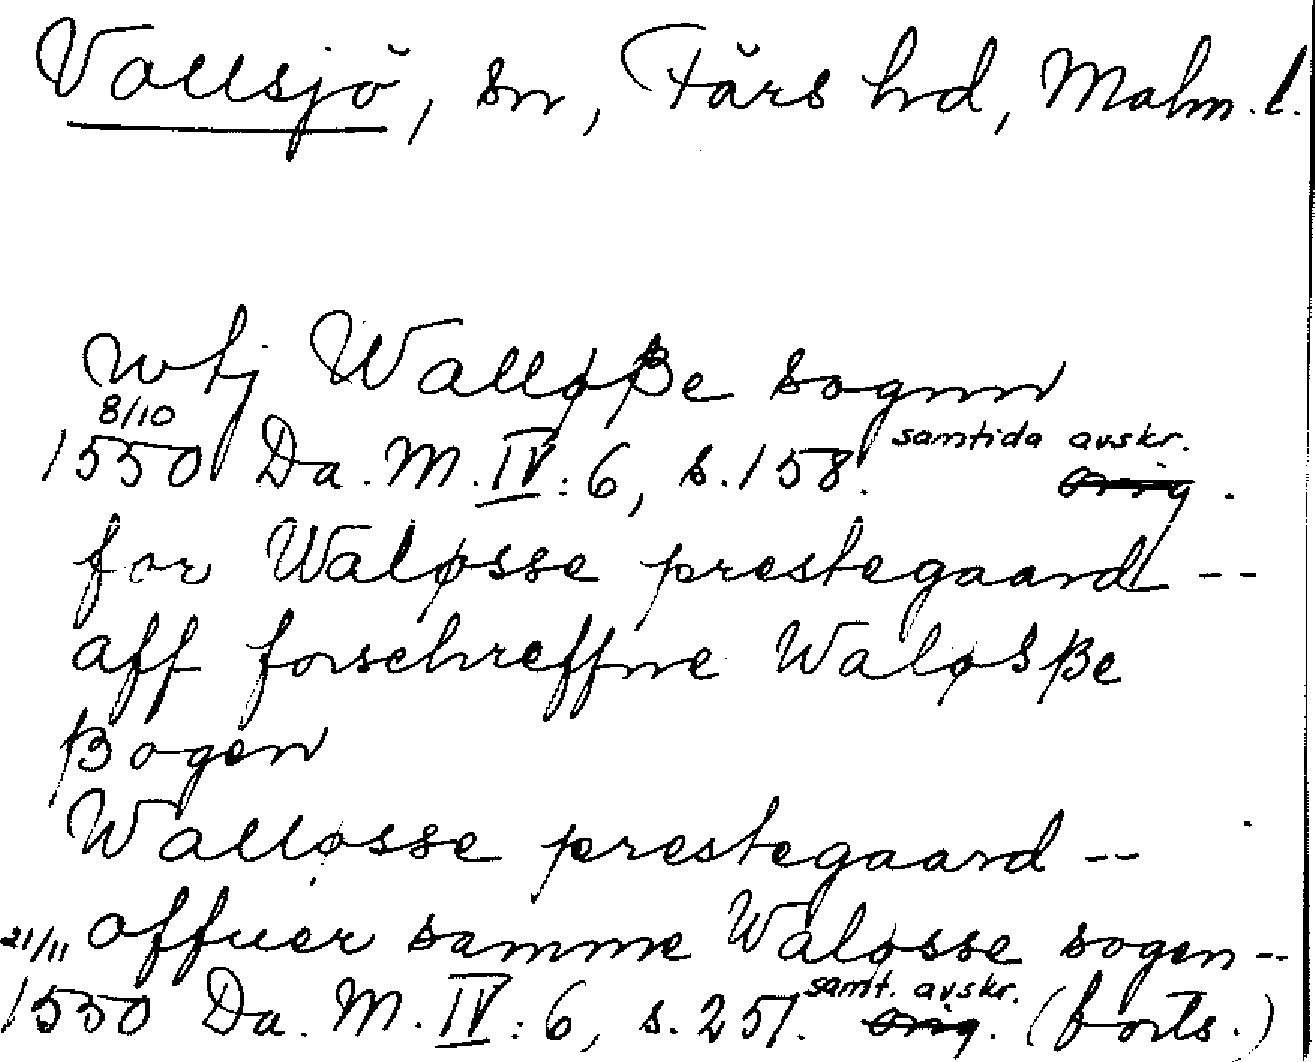 Vallsjö, sn, Färs hd, Malm. l.
wtj Walløße sognn
8/10
1550 Da. M. IV: 6, s. 158. samtida avskr.
orig.
for Waløsse prestegaard --
aff forschreffne Waløsße
ßogen
Walløsse prestegaard --
21/11 offuer samme Waløsse sogen --
1550 Da. M. IV: 6, s. 251. samt. avskr.
orig. (forts.)